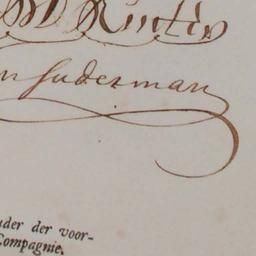 n Suderman
uder der voor-
Compagnie.